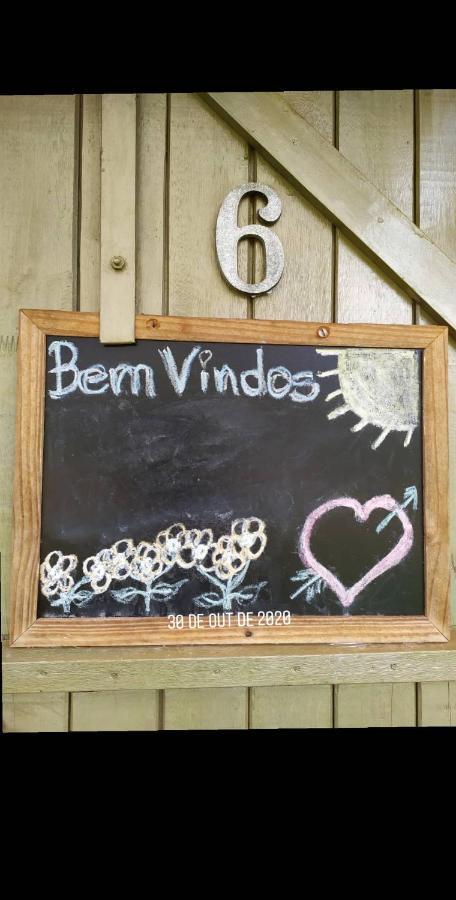 6
Bem Vindos
30 DE OUT DE 2020